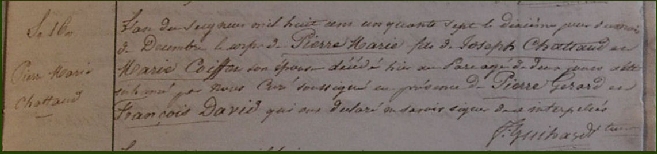 Le 10
Pierre Marie
Chattaud
L'an du Seigneur mil huit cent cinquante sept le dixième jour du mois
de Décembre le corps de Pierre Marie fils de Joseph Chattaud et
Marie Coiffan son épouse décédé hier au Parc agé de deux jours a été
inhumé par nous Curé soussigné en présence de Pierre Gerard et
François David qui ont déclaré ne savoir signer de ce interpellés
J. Guihard